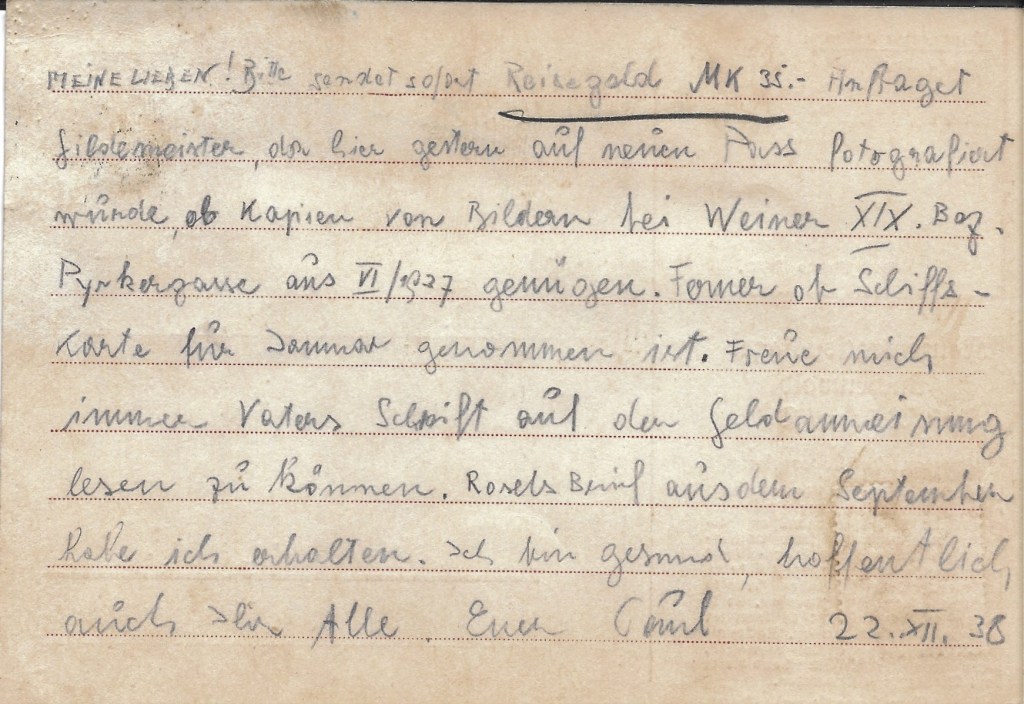 MEINE LIEBEN! Bitte sendet sofort Reisegeld MK 35.- Anfraget
Gildemeister, da hier gestern auf neuen Pass fotografiert
wurde, ob Kopien von Bildern bei Weiner XIX. Bez.
Pyrkergasse aus VI/1937 genügen. Ferner ob Schiffs-
karte für Januar genommen ist. Freue mich
immer Vaters Schrift auf der Geldanweisung
lesen zu können. Rosels Brief aus dem September
habe ich erhalten. Ich bin gesund, hoffentlich
auch Ihr Alle. Euer Paul 22.XII.38